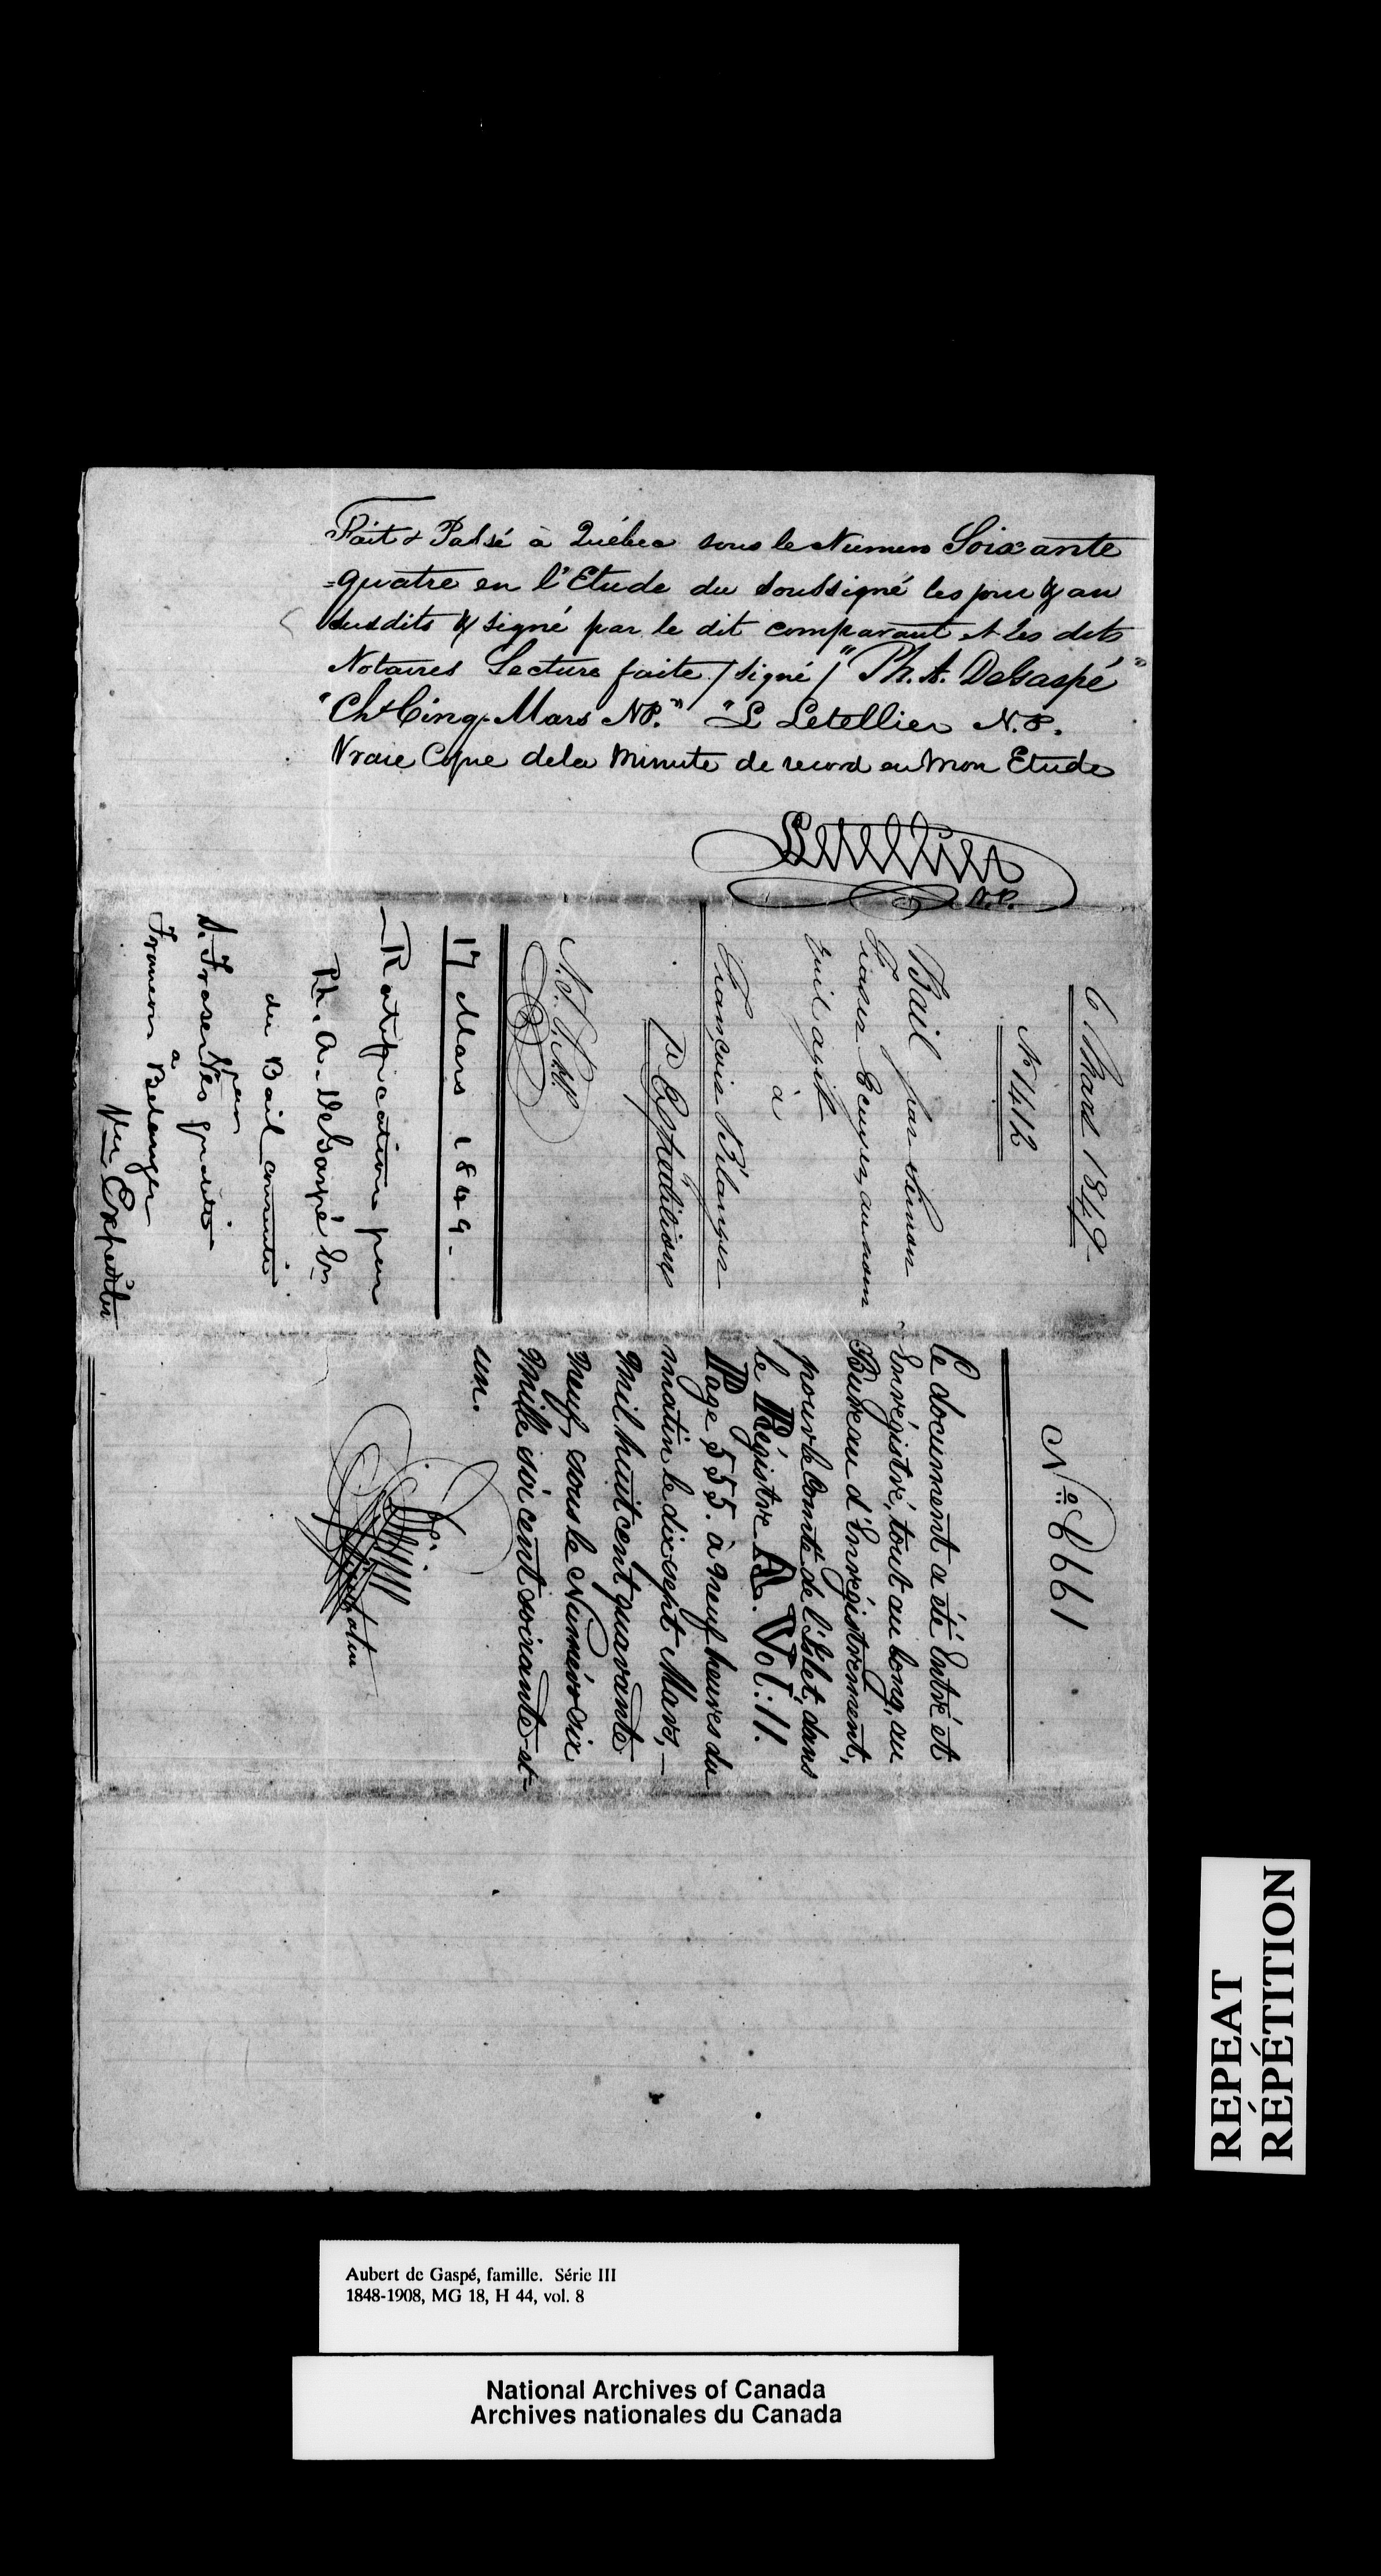 Fait & Passé à Québec sous le Numero Soixante
=quatre en l'Etude du Soussigné les jour & an
susdits & signé par le dit comparant et les dits
Notaires Lecture faite / signé / "Ph. A. DeGaspé"
"Chs Cinq-Mars NP." "L Letellier N.P.
Vraie Copie de la Minute de record en Mon Etude
Letellier
N.P.
6 Mars 1849
No 1412
Bail par Simon
Fraser Ecuyer, au nom
qu'il agit
à
François Bélanger
Expéditions
17 Mars 1849-
Ratification par
Ph. A. DeGaspé Er
du Bail consenti
par
S. Fraser ès qualité
à
Francois Belanger
Expédition
No. 6661
Ce document a été Entré et
Enrégistré, tout au long, au
Bureau d'Enrégistrement,
pour le Comté de l'Islet, dans
le Régistre A. Vol: 11.
Page 555. à neuf heures du
matin le dix sept Mars,—
Mil huit cent quarante
neuf, sous le Numéro six
mille six cent soixante et
un.
REPEAT
RÉPÉTITION
Aubert de Gaspé, famille. Série III
1848-1908, MG 18, H 44, vol. 8
National Archives of Canada
Archives nationales du Canada